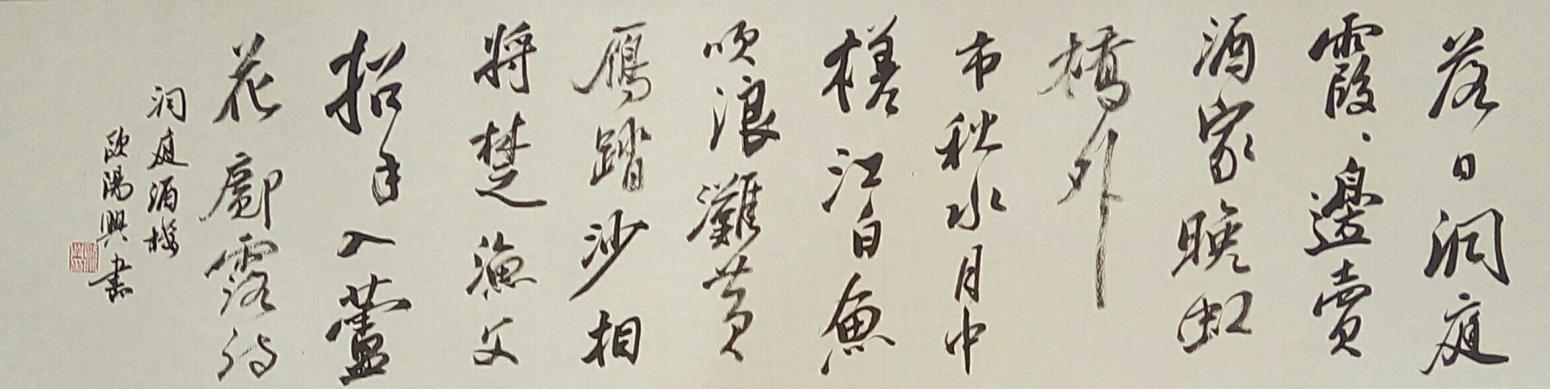 落日洞庭
霞、邊賣
酒家晚虹
橋外
市秋水月中
槎江白魚
吹浪灘黄
鴈踏沙相
將楚漁父
招手入蘆
花鄺露詩
洞庭酒楼
歐陽興書